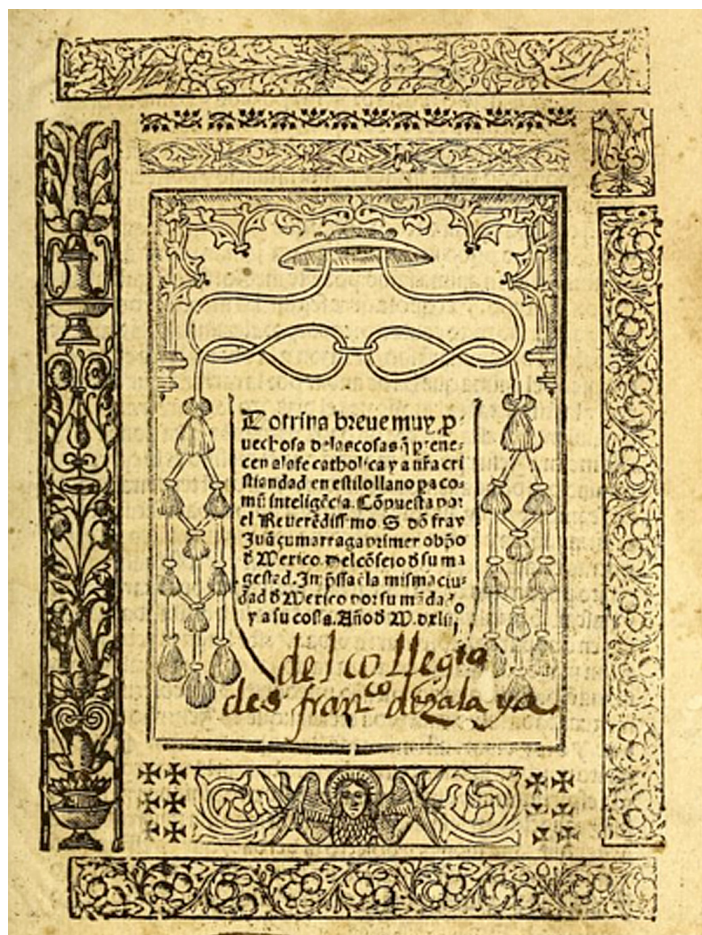 Dotrina breue muy ꝓ-
uechosa d̓las cosas q̃ ꝑtene-
cen a la fe catholica y a nr̃a cri
stiandad en estilo llano pa co-
mũ inteligẽcia. Cõpuesta por
el Reuerẽdissimo S. dõ fray
Juã çumarraga primer obp̃o
d̓ Mexico. Del cõsejo d̓ su ma
gestad. Inp̃ssa ẽ la misma ciu-
dad d̓ Mexico por su mãdado
y a su costa. Año d̓ M.dxliij
del collegio
de s franco. dezalaya